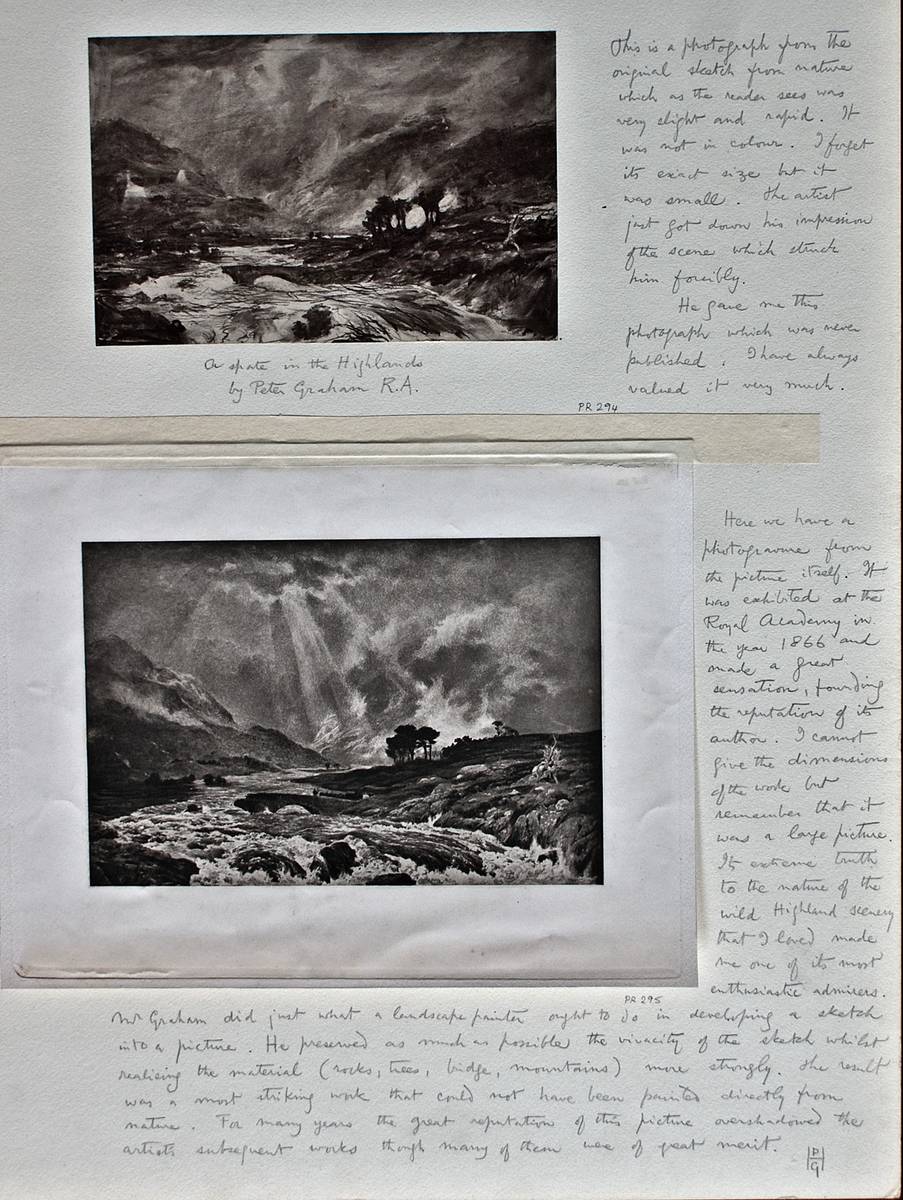 This is a photograph from the
original sketch from nature
which as the reader sees was
very slight and rapid. It
was not in colour. I forget
its exact size but it
was small. The artist
just got down his impression
of the scene which struck
him forcibly.
He gave me this
photograph which was never
published. I have always
valued it very much.
A spate in the Highlands
by Peter Graham R.A.
PR 294
Here we have a
photogravure from
the picture itself. It
was exhibited at the
Royal Academy in
the year 1866 and
made a great
sensation, founding
the reputation of its
author. I cannot
give the dimensions
of the work but
remember that it
was a large picture.
Its extreme truth
to the nature of the
wild Highland scenery
that I loved made
me one of its most
enthusiastic admirers.
PR 295
Mr Graham did just what a landscape painter ought to do in developing a sketch
into a picture. He preserved as much as possible the vivacity of the sketch whilst
realising the material (rocks, trees, bridge, mountains) more strongly. The result
was a most striking work that could not have been painted directly from
nature. For many years the great reputation of this picture overshadowed the
artists subsequent works though many of them were of great merit.